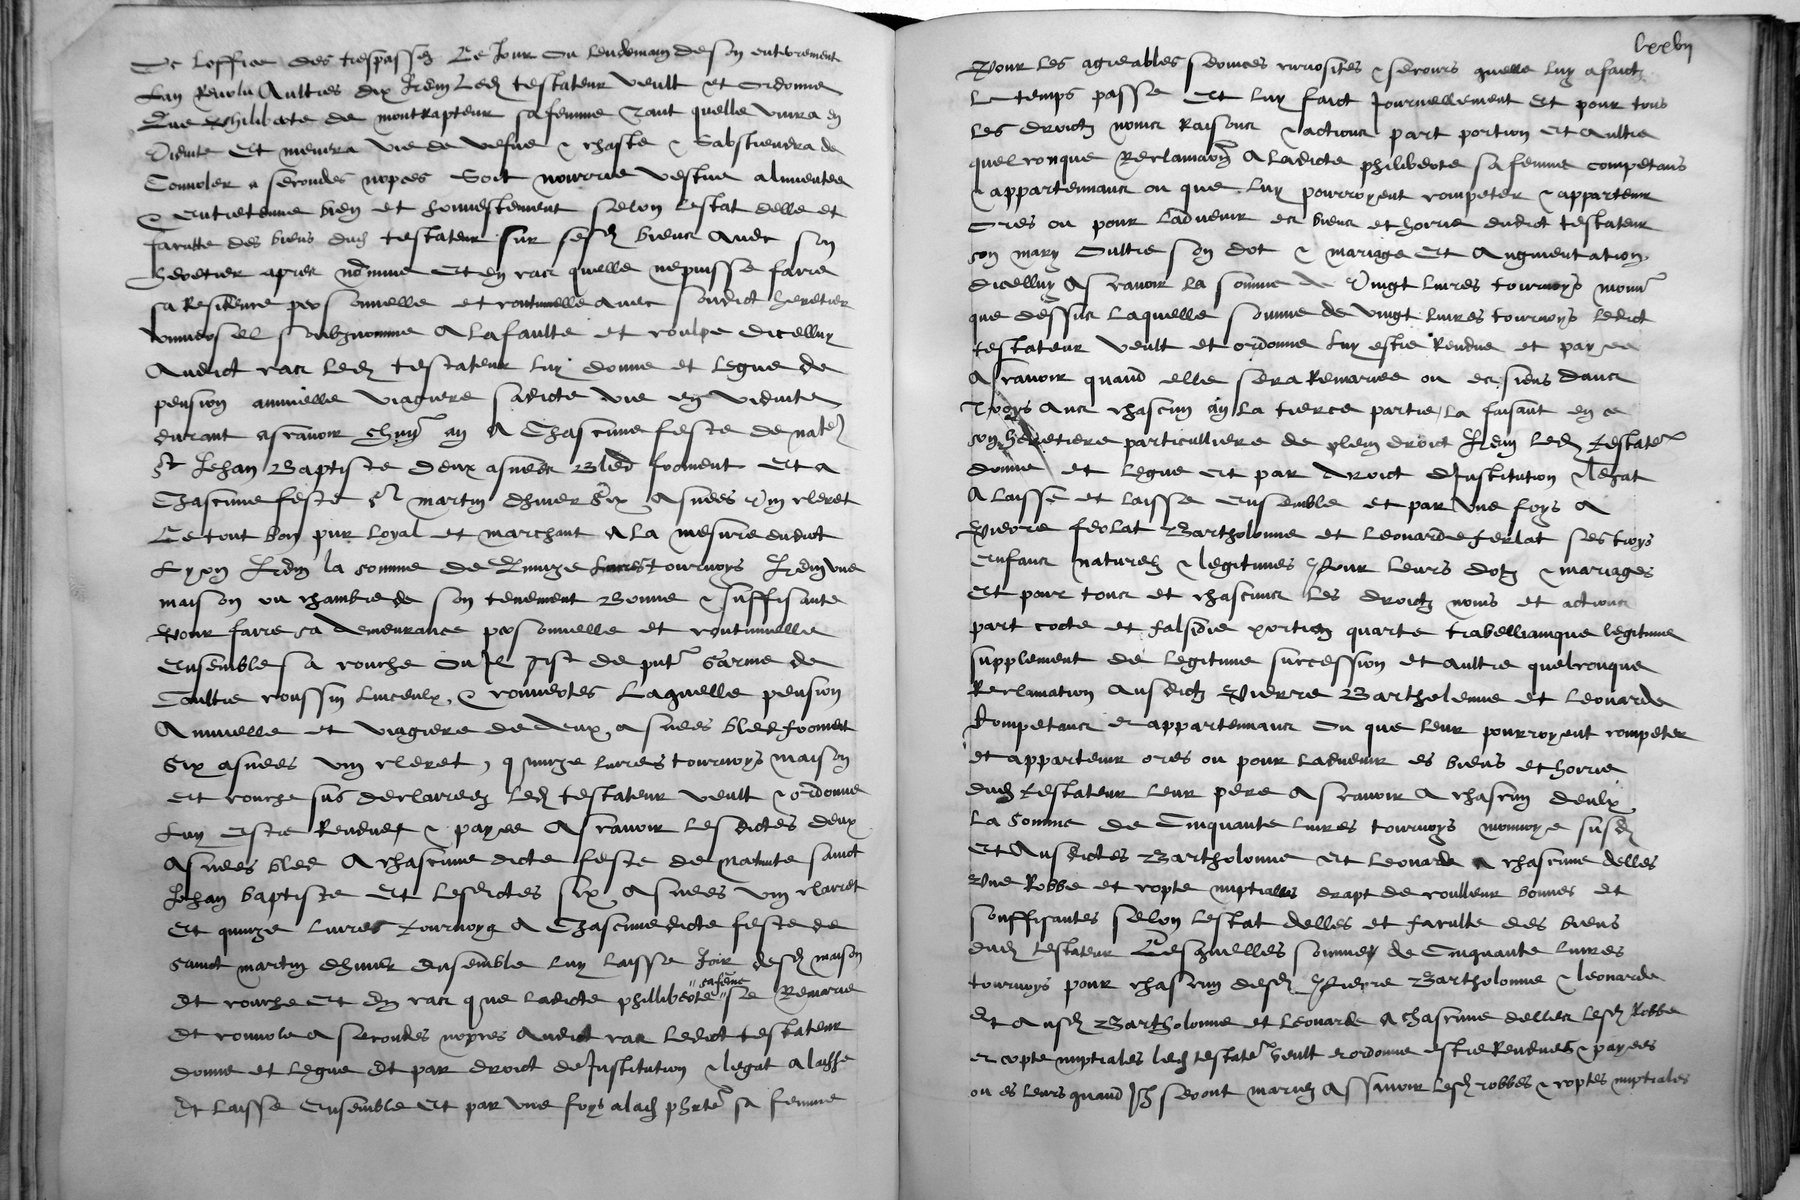 De loffice des trespassez Le Jour ou lendemain de son enterrement
Lan Revolu Aultres dix Item Ledt testateur veult et ordonne
Que Philiberte de montrapteur sa femme Tant quelle vivra en
viduite Et menera vie de vefve & chaste & sabstiendra de
Convoler a secondes nopces Soit nourrie vestue alimentee
& entretenue bien et honnestement selon lestat delle et
faculte des biens dudt testateur sur sesdt biens Avec son
heretier apres nomme Et en cas quelle ne puisse faire
sa Residence personnelle et continuelle avec sondict heretier
universel soubznomme A la faulte et coulpe dicelluy
Audict cas Ledt testateur luy donne et legue de
pension annuelle viagiere sadicte vie en viduite
durant ascavoir chun an A Chascune feste de natte
st Jehan Baptiste deux asnees Bled froment Et a
Chascune feste st martin dhiver Six Asnees vin cleret
Le tout bon pur loyal et marchant A la mesure dudict
Lyon Item la somme de Quinze livres tournoys Item une
maison ou chambre de son tenement Bonne & suffisante
Pour faire sa demeurance personnelle et continuelle
Ensemble sa couche ou Il gist de put garnie de
Coultre coussin linceulx & couvertes Laquelle pension
Annuelle et viagiere de deux asnees bled froment
Six asnees vin cleret, quinze livres tournoys maison
et couche sus declairees Ledt testateur veult & ordonne
Luy Estre Rendues & payee Ascavoir lesdictes deux
Asnees bled A chascune dicte feste de nativite sainct
Jehan baptiste Et lesdictes six Asnees vin claret
Et quinze livres tournoys A Chascune dicte feste de
sainct martin dhiver Ensemble luy laisse Joir desdt maison
Et couche Et En cas que ladicte philliberte "sa femme" se Remarie
Et convole A secondes nopces Audict cas Ledict testateur
donne et legue Et par droict de Institution & legat A laisse
Et laisse Ensemble Et par une foys a ladt phrte sa femme
lxxvii
Pour les agreables services curiosites & secours quelle luy a faictz
Le temps passe Et luy faict Journellement Et pour tous
les droictz noms Raisons & actions part portion Et aultre
quelconque Reclamaon A ladicte philiberte sa femme competans
& appartenans ou que luy pourroyent competer & appartenir
Ores ou pour ladvenir es biens et horrie dudict testateur
son mary Oultre son dot & mariage Et Augmentation
dicelluy Ascavoir la somme de vingt livres tournoys monn
que dessus Laquelle somme de vingt livres tournoys ledict
testateur veult et ordonne luy estre Rendue et payee
Ascavoir quand elle sera Remariee ou es siens dans
Troys Ans chascun an la tierce partie, la faisant en ce
son heretiere particulliere de plein droict Item Ledt testater
donne et legue Et par droict dInstitution & legat
A laisse et laisse Ensemble et par une foys A
Pierre ferlat Bartholomie et Leonarde ferlat ses troys
Enfans naturelz & legitimes Pour leurs dotz & mariages
Et pour tous et chascuns les droictz noms et actions
part cocte et falsidie portion quarte trabellianique legitime
supplement de legitime succession et aultre quelconque
Reclamation Ausdictz Pierre Bartholemie et Leonarde
Competans & appartenans Ou que leur pourroyent competer
Et appartenir ores ou pour ladvenir es biens et horrie
dudt testateur leur pere Ascavoir A chascun deulx
La somme de Cinquante livres tournoys monnoye susdt
Et Ausdictes Bartholomie Et Leonarde A chascune delles
Une Robbe et copte nuptialles drapt de coulleur bonnes Et
souffisantes selon lestat delles et faculte des biens
dudt testateur Lesquelles sommes de Cinquante livres
tournoys pour chascun desdt Pierre Bartholomie & leonarde
Et Ausdt Bartholomie et Leonarde A chascune delles Lesdt Robbe
et copte nuptiales ledt testater veult et ordonne estre Rendues & payees
ou es leurs quand Ilz seront mariez Assavoir lesdt robbes & coptes nuptiales